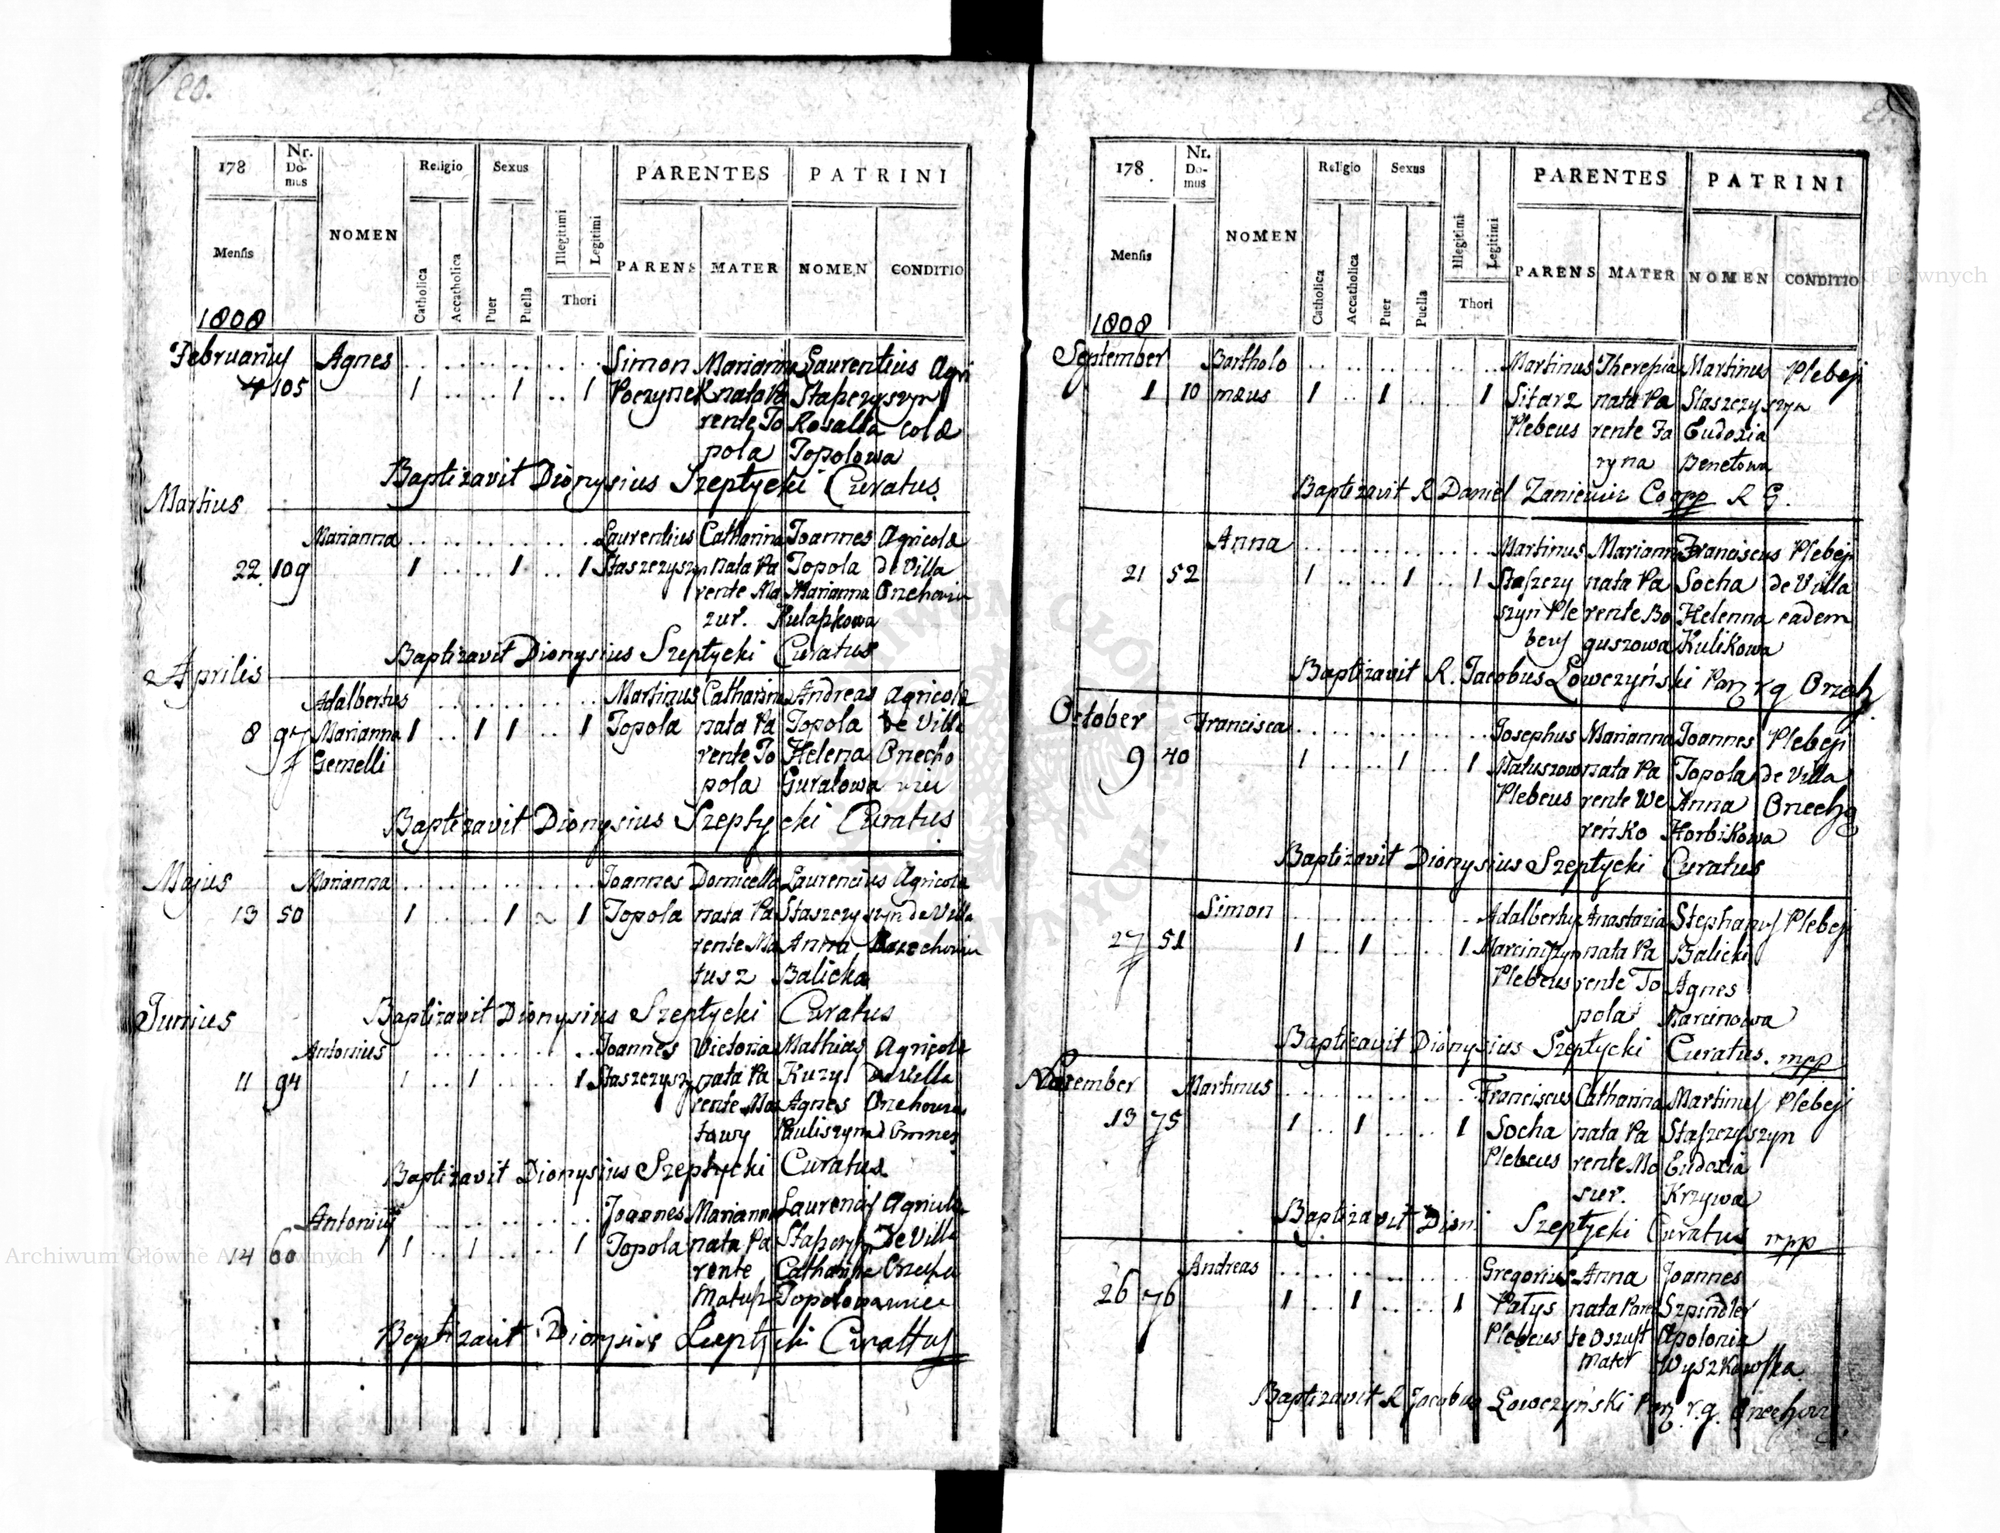 80.
178
Nr. Do- mus
NOMEN
Religio
Sexus
PARENTES
PATRINI
Mensis
Catholica
Accatholica
Puer
Puella
Illegitimi
Legitimi
Thori
PARENS
MATER
NOMEN
CONDITIO
1808
Februarius Agnes Simon Marianna Laurentius Agri
4 105 1 1 1 Poczynek nata Pa Staszczyszyn
rente To Rosalia colæ
pola Topolowa
Baptizavit Dionysius Szeptycki Curatus
Martius
Marianna Laurentius Catharina Joannes Agricolæ
22. 109 1 1 1 Staszczyszyn nata Pa Topola de Villa
rente Ma Marianna Orzechowiec
zur. Kulapkowa
Baptizavit Dionysius Szeptycki Curatus
Aprilis
Adalbertus Martinus Catharina Andreas Agricolæ
8 97 Marianna 1 1 1 1 Topola nata Pa Topola de Villa
Gemelli rente To Helena Orzecho
pola Guralowa wiec
Baptizavit Dionysius Szeptycki Curatus
Majus Marianna Joannes Domicella Laurencius Agricolæ
13 50 1 1 1 Topola nata Pa Staszczyszyn de Villa
rente Ma Anna Orzechowiec
tusz Balicka
Junius Baptizavit Dionysius Szeptycki Curatus
Antonius Joannes Victoria Mathias Agricolæ
11 94 1 1 1 Staszczyszyn nata Pa Kuzy de Villa
rente Ma Agnes
towy Kuliszyna
Baptizavit Dionysius Szeptycki Curatus
Antonius Joannes Marianna Laurencius Agricolæ
14 60 1 1 1 Topola nata Pa de Villa
rente Catharina
Matusz Topolowa
Baptizavit Dionysius Szeptycki Curattus
178
Nr. Do- mus
NOMEN
Religio
Sexus
PARENTES
PATRINI
Mensis
Catholica
Accatholica
Puer
Puella
Illegitimi
Legitimi
Thori
PARENS
MATER
NOMEN
CONDITIO
1808
September Bartholo Martinus Theresia Martinus Plebeji
1 10 mæus 1 1 1 Sitarz nata Pa Staszczyszyn
Plebeus rente Fa Eudoxia
ryna Benetowa
Baptizavit R Daniel Zaniewicz Coopp R G.
Anna Martinus Marianna Franciscus Plebeji
21 52 1 1 1 Staszczy nata Pa Socha de Villa
szyn Ple rente Bo Helenna eadem
beus guszowa Kulikowa
Baptizavit R. Jacobus Łowczyński Par r.g. Orzech
October Francisca Josephus Marianna Joannes Plebeji
9 40 1 1 1 Matuszow nata Pa Topola de Villa
Plebeus rente We Anna Orzecho
reńko Horbikowa
Baptizavit Dionysius Szeptycki Curatus
Simon Adalbertus Anastazia Stephanus Plebeji
27 51 1 1 1 Marciniszyn nata Pa Balicki
Plebeus rente To Agnes
pola Marcinowa
Baptizavit Dionysius Szeptycki Curatus. mpp
November Martinus Franciscus Catharina Martinus Plebeji
13 75 1 1 1 Socha nata Pa Staszczyszyn
Plebeus rente Mo Eudoxia
sier. Krzywa
Baptizavit Dioni Szeptycki Curatus mpp
Andreas Gregorius Anna Joannes
26 76 1 1 1 Patys nata Paren Szpindler
Plebeus te Oszust Apolonia
mater Wyszkowska
Baptizavit R Jacobus Łowczyński Par r.g. Orzechow
Archiwum Główne Akt Dawnych